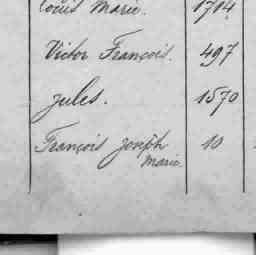 Louis Marie. 1714
Victor François. 497
Jules. 1570
François Joseph 10
Marie